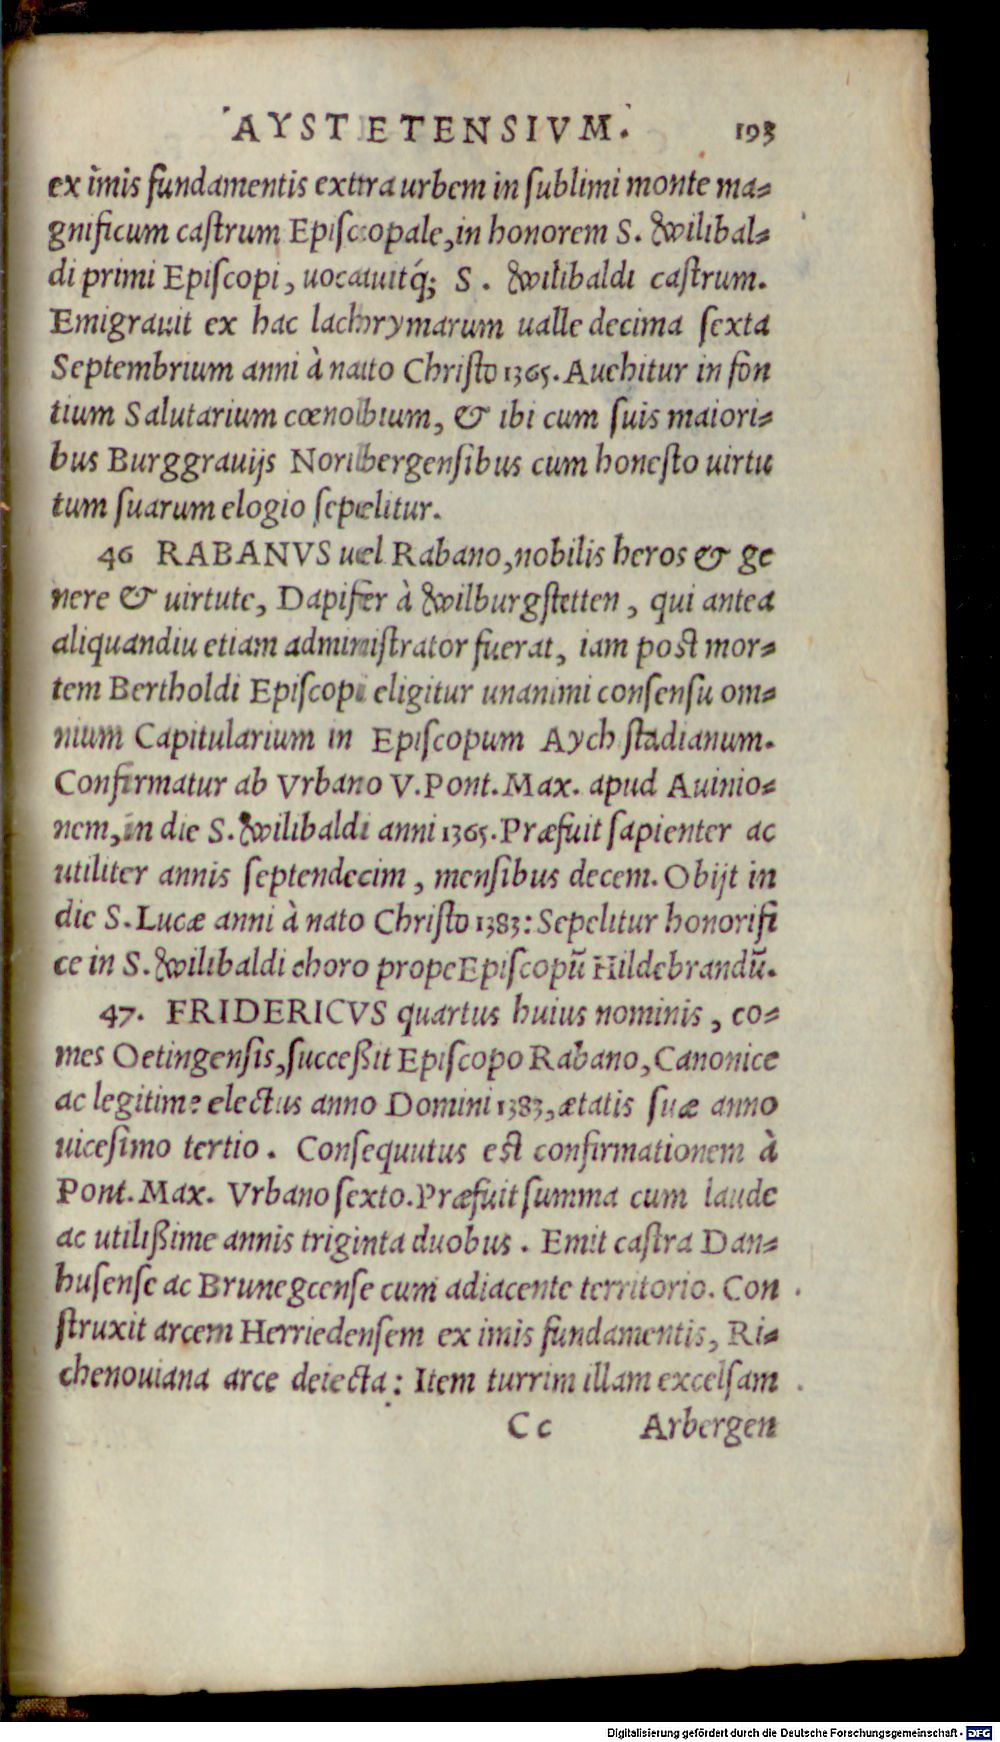 AYSTETENSIVM. 193
ex imis fundamentis extra urbem in sublimi monte ma-
gnificum castrum Episcopale, in honorem S. Wilibal-
di primi Episcopi, uocauitq́; S. Wilibaldi castrum.
Emigrauit ex hac lachrymarum ualle decima sexta
Septembrium anni à nato Christo 1365. Auehitur in fon
tium Salutarium cœnobium, & ibi cum suis maiori-
bus Burggrauijs Noribergensibus cum honesto uirtu
tum suarum elogio sepelitur.
46 RABANVS uel Rabano, nobilis heros & ge
nere & uirtute, Dapifer à Wilburgstetten, qui antea
aliquandiu etiam administrator fuerat, iam post mor-
tem Bertholdi Episcopi eligitur unanimi consensu om-
nium Capitularium in Episcopum Aychstadianum.
Confirmatur ab Vrbano V. Pont. Max. apud Auinio-
nem, in die S. Wilibaldi anni 1365. Præfuit sapienter ac
utiliter annis septendecim, mensibus decem. Obijt in
die S. Lucæ anni à nato Christo 1383: Sepelitur honorifi
ce in S. Wilibaldi choro prope Episcopũ Hildebrandũ.
47. FRIDERICVS quartus huius nominis, co-
mes Oetingensis, succeßit Episcopo Rabano, Canonice
ac legitime electus anno Domini 1383, ætatis suæ anno
uicesimo tertio. Consequutus est confirmationem à
Pont. Max. Vrbano sexto. Præfuit summa cum laude
ac utilißime annis triginta duobus. Emit castra Dan-
husense ac Brunegcense cum adiacente territorio. Con
struxit arcem Herriedensem ex imis fundamentis, Ri-
chenouiana arce deiecta: Item turrim illam excelsam
Cc Arbergen
Digitalisierung gefördert durch die Deutsche Forschungsgemeinschaft - DFG